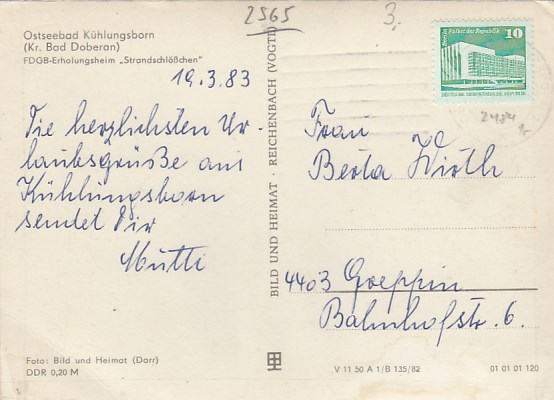 2565
3,-
Ostseebad Kühlungsborn
(Kr. Bad Doberan)
FDGB-Erholungsheim „Strandschlößchen"
19.3.83
Die herzlichsten Ur-
laubsgrüße aus
Kühlungsborn
sendet Dir
Mutti
BILD UND HEIMAT · REICHENBACH (VOGTL)
Berlin, Palast der Republik
10
DEUTSCHE DEMOKRATISCHE REPUBLIK
Frau
Berta Wirth
4403 Goeppin
Bahnhofstr. 6.
Foto: Bild und Heimat (Darr)
DDR 0,20 M
V 11 50 A 1/B 135/82
01 01 01 120